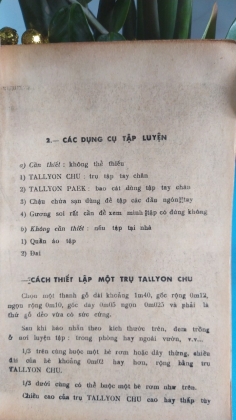 2.— CÁC DỤNG CỤ TẬP LUYỆN
a) Cần thiết : không thể thiếu
1) TALLYON CHU : trụ tập tay chân
2) TALLYON PAEK : bao cát dùng tập tay chân
3) Chậu chứa sạn dùng để tập các đầu ngón tay
4) Gương soi rất cần để xem mình tập có đúng không
b) Không cần thiết : nếu tập tại nhà
1) Quần áo tập
2) Đai
—CÁCH THIẾT LẬP MỘT TRỤ TALLYON CHU
Chọn một thanh gỗ dài khoảng 1m40, gốc rộng 0m12,
ngọn rộng 0m10, gốc dày 0m05 ngọn 0m025 và phải là
thứ gỗ dẻo vừa có sức cứng.
Sau khi bào nhẵn theo kích thước trên, đem trồng
ở nơi luyện tập : trong phòng hay ngoài vườn, v.v...
1/3 trên cùng buộc một bó rơm hoặc dây thừng, chiều
dày của bó khoảng 0m02 hay hơn, rộng bằng trụ
TALLYON CHU.
1/3 dưới cũng có thể buộc một bó rơm như trên.
Chiều cao của trụ TALLYON CHU cao hay thấp tùy